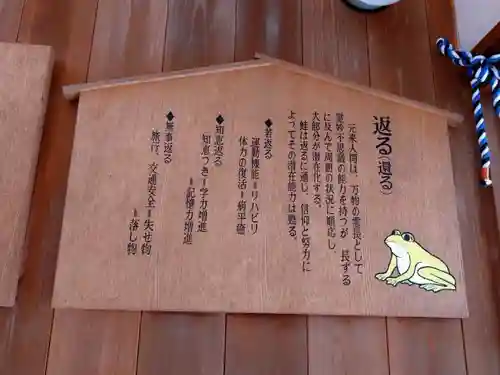 返る(還る)
元来人間は、万物の霊長として
霊妙不思議の能力を持つが、長ずる
に反んで周囲の状況に順応し、
大部分が潜在化する。
蛙は返るに通じ、信仰と努力に
よってその潜在能力は甦る。
◆若返る
運動機能=リハビリ
体力の復活=病平癒
◆知恵返る
知恵つき=学力増進
=記憶力増進
◆無事返る
旅行、交通安全=失せ物
=落し物